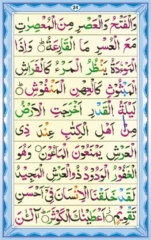 24
وَالْفَتْحُ وَالْعَصْرِ مِنَ الْمُعْصِرٰتِ
مَعَ الْعُسْرِ مَا الْقَارِعَةُ
يَنْظُرُ الْمَرْءُ كَالْفَرَاشِ
كَالْعِهْنِ الْمَنْفُوْشِ
لَيْلَةُ الْقَدْرِ اَخْرَجَتِ الْاَرْضُ
مِنْ اَهْلِ الْكِتٰبِ عِنْدَ ذِى
الْعَرْشِ يَمْنَعُوْنَ الْمَاعُوْنَ وَهُوَ
الْغَفُوْرُ الْوَدُوْدُ ذُو الْعَرْشِ الْمَجِيْدُ
لَقَدْ خَلَقْنَا الْاِنْسَانَ فِىْ اَحْسَنِ
تَقْوِيْمٍ اَعْطَيْنٰكَ الْكَوْثَرَ